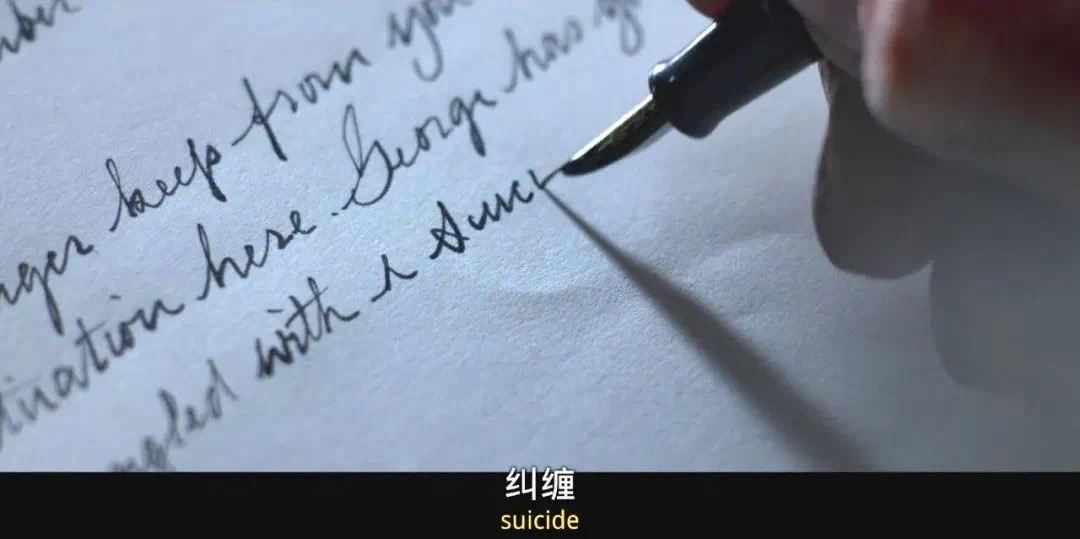 keep from you
tuation here. George has
ngled with a suic
纠缠
suicide